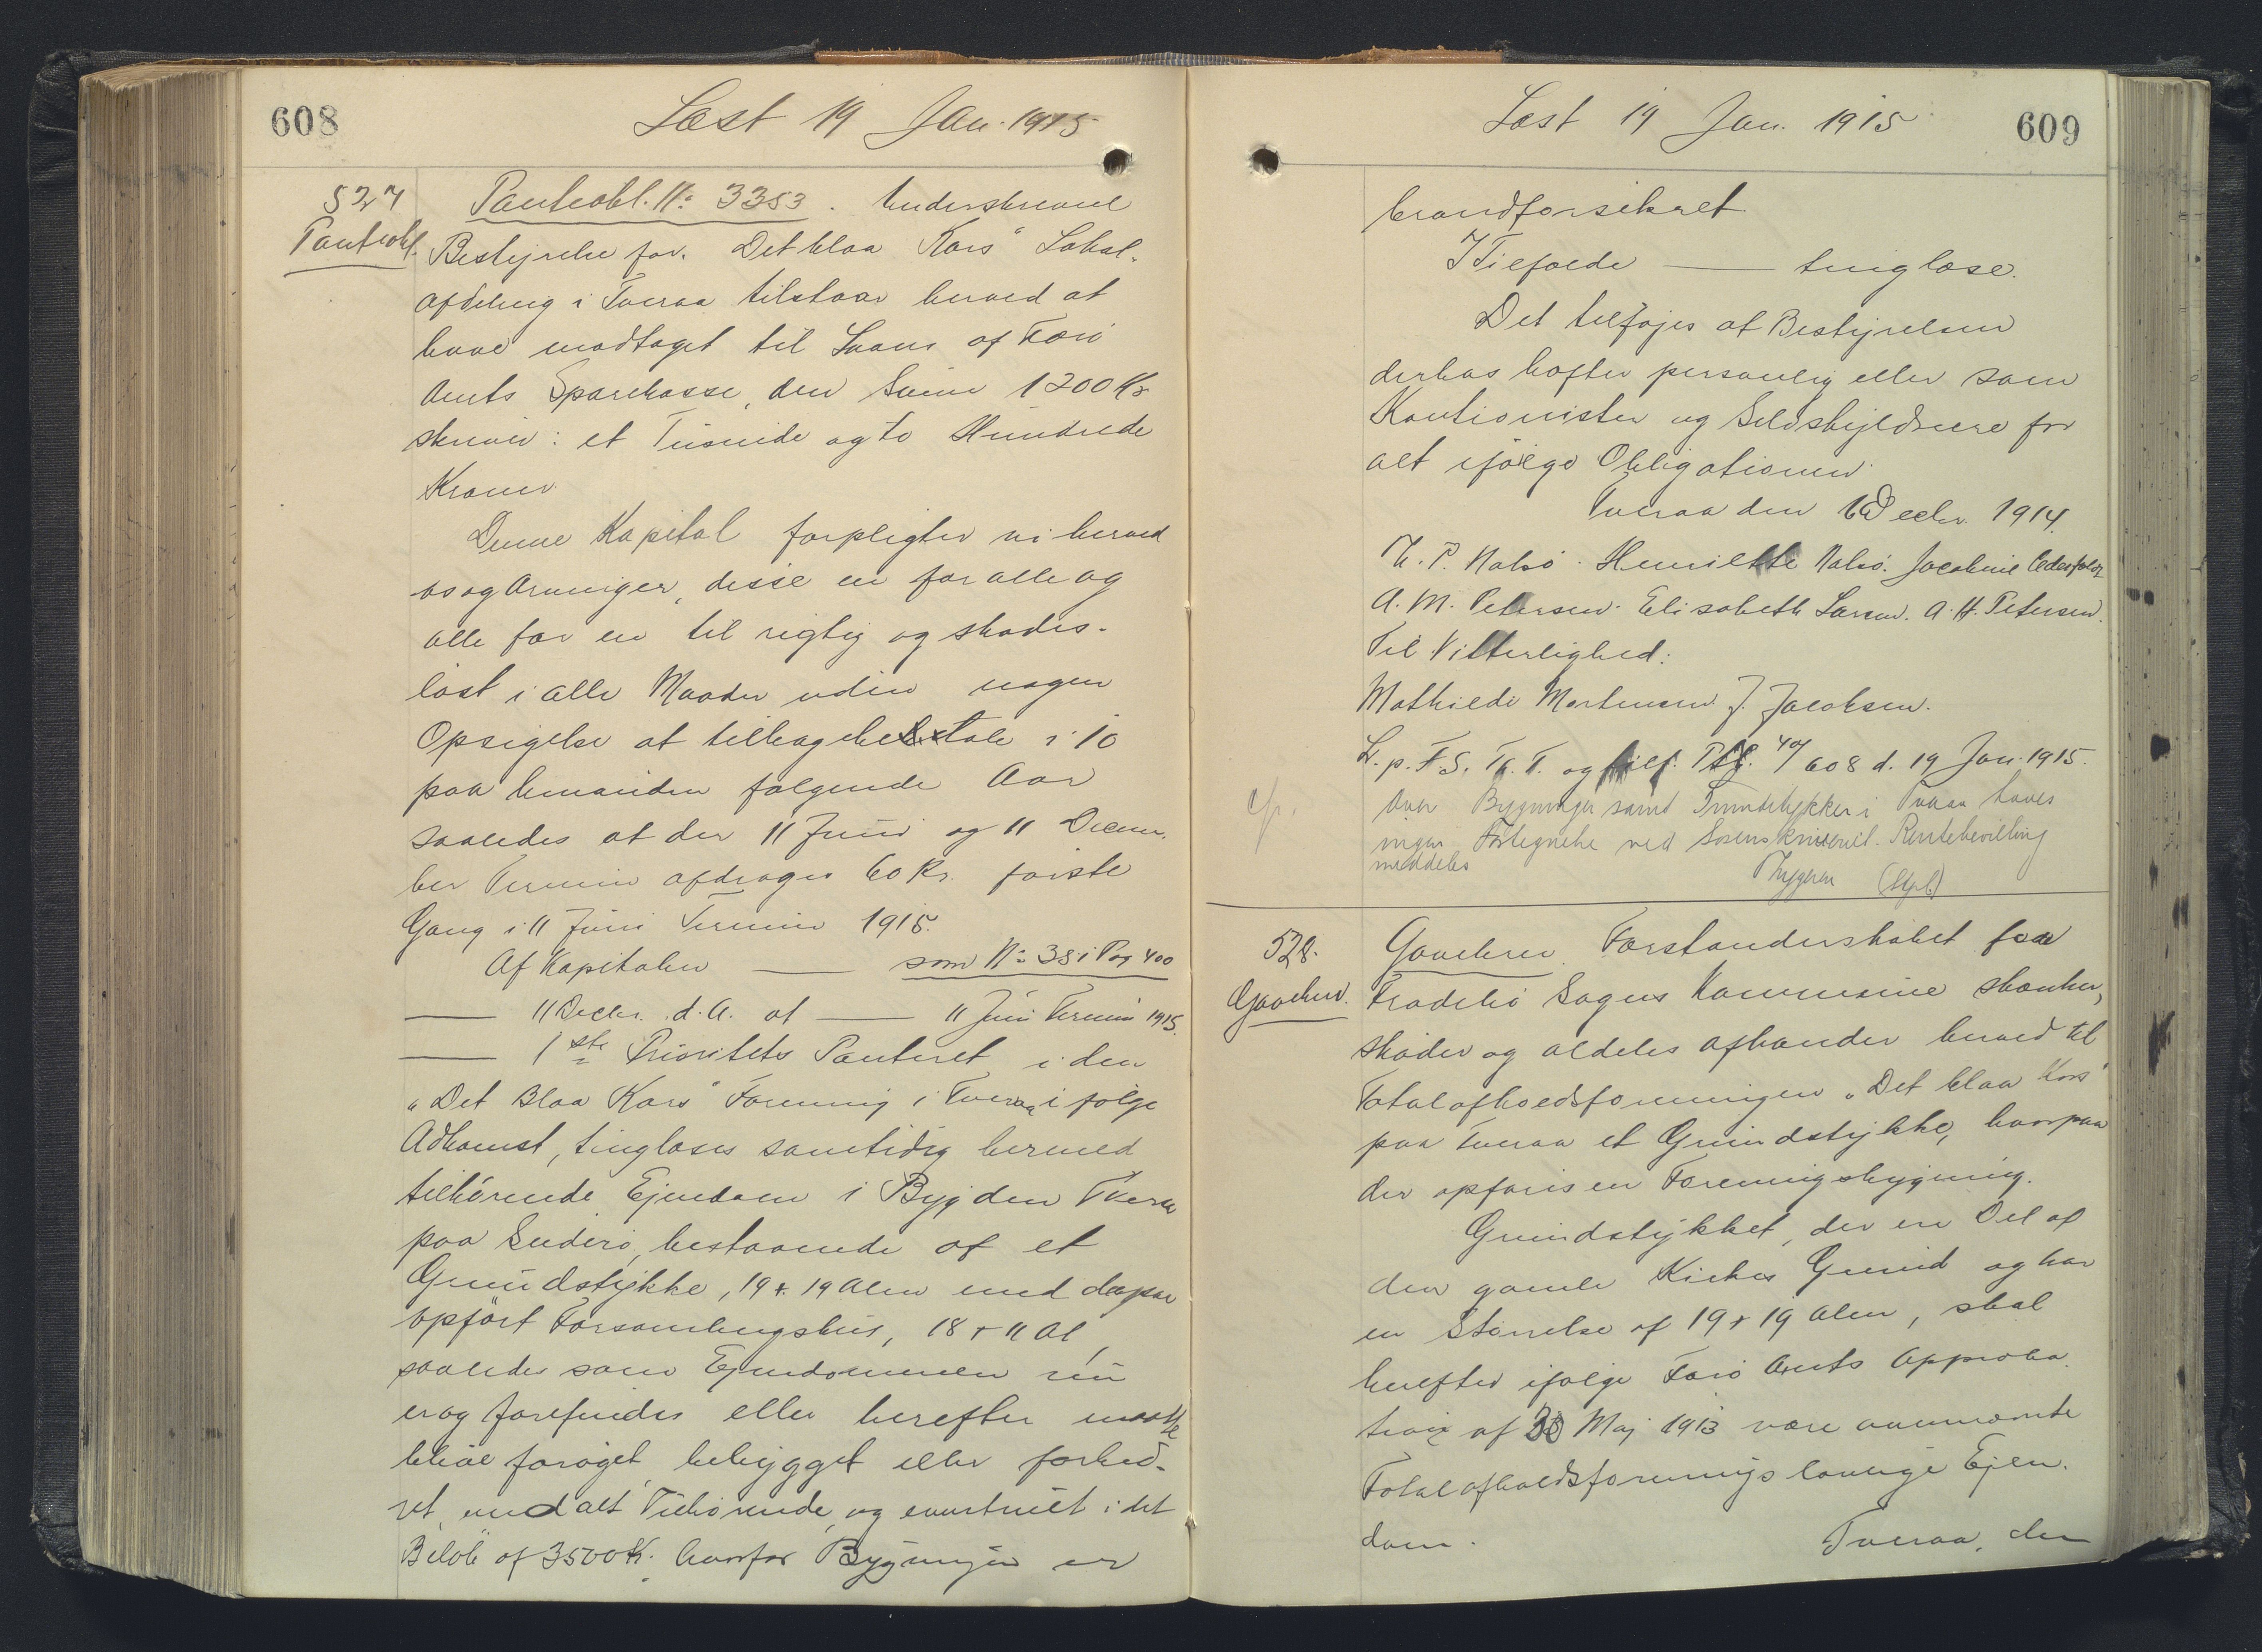 608
Læst 19 Jan. 1915
527
Panteobl.
Panteobl. No 3353. Underskrevne
Bestyrelse for "Det blaa Kors" Lokal-
afdeling i Tveraa tilstaar herved at
have modtaget til Laans af Færø
Amts Sparekasse, den Summa 1200 Kr
skriver: et Tusinde og to Hundrede
Kroner.
Denne Kapital forpligter vi herved
os og Arvinger, disse en for alle og
alle for en til rigtig og skades-
løst i alle Maader uden nogen
Opsigelse at tilbagebetale i 10
paa hinanden følgende Aar
saaledes at der 11 Juni og 11 Decem-
ber Termin afdrages 60 Kr. første
Gang i 11 Juni Termin 1915.
Af Kapitalen — som No 38 i Pag 400
— 11 Decbr. d.A. at — 11 Juni Termin 1915
— 1ste Prioritets Panteret i den
"Det Blaa Kors" Forening i Tveraa i følge
Adkomst, tinglæses samtidig hermed
tilhørende Ejendom i Bygden Tveraa
paa Suderø, bestaaende af et
Grundstykke, 19 x 19 Alen med derpaa
opført Forsamlingshus, 18 x 11 Al,
saaledes som Ejendommen nu
er og forefindes eller herefter maatte
blive forøget, bebygget eller forbed-
ret, med alt Tilhørende, og eventuelt i det
Beløb af 3500 Kr. hvorfor Bygningen er
Læst 19 Jan. 1915
609
brandforsikret
I Tilfælde — tinglæse.
Det tilføjes at Bestyrelsen
derhos hæfter personlig eller som
Kautionister og Selvskyldnere for
alt ifølge Obligationen.
Tveraa den 6 Decbr. 1914.
N. P. Nolsø. Henriette Nolsø. Jacobine
A. M. Petersen. Elisabeth Larsen. A. H. Petersen.
Til Vitterlighed:
Mathilde Mortensen J. Jacobsen.
L. p. F. S. Th. T. og 608 d. 19 Jan. 1915.
cfr.
Over Bygninger samt Grundstykker i Tveraa haves
ingen Fortegnelse ved Sorenskriveriet. Rentebevilling
meddeles
528.
Gavebrev.
Gavebrev. Forstanderskabet for
Frodebø Sogns Kommune skænker,
skøder og aldeles afhænder herved til
Totalafholdsforeningen "Det blaa Kors"
paa Tveraa et Grundstykke, hvorpaa
der opføres en Foreningsbygning.
Grundstykket, der er en Del af
den gamle Kirkes Grund og har
en Størrelse af 19 x 19 Alen, skal
herefter ifølge Færø Amts Approba-
tion af 30 Maj 1913 være ovennævnte
Totalafholdsforenings lovlige Ejen-
dom.
Tveraa, den